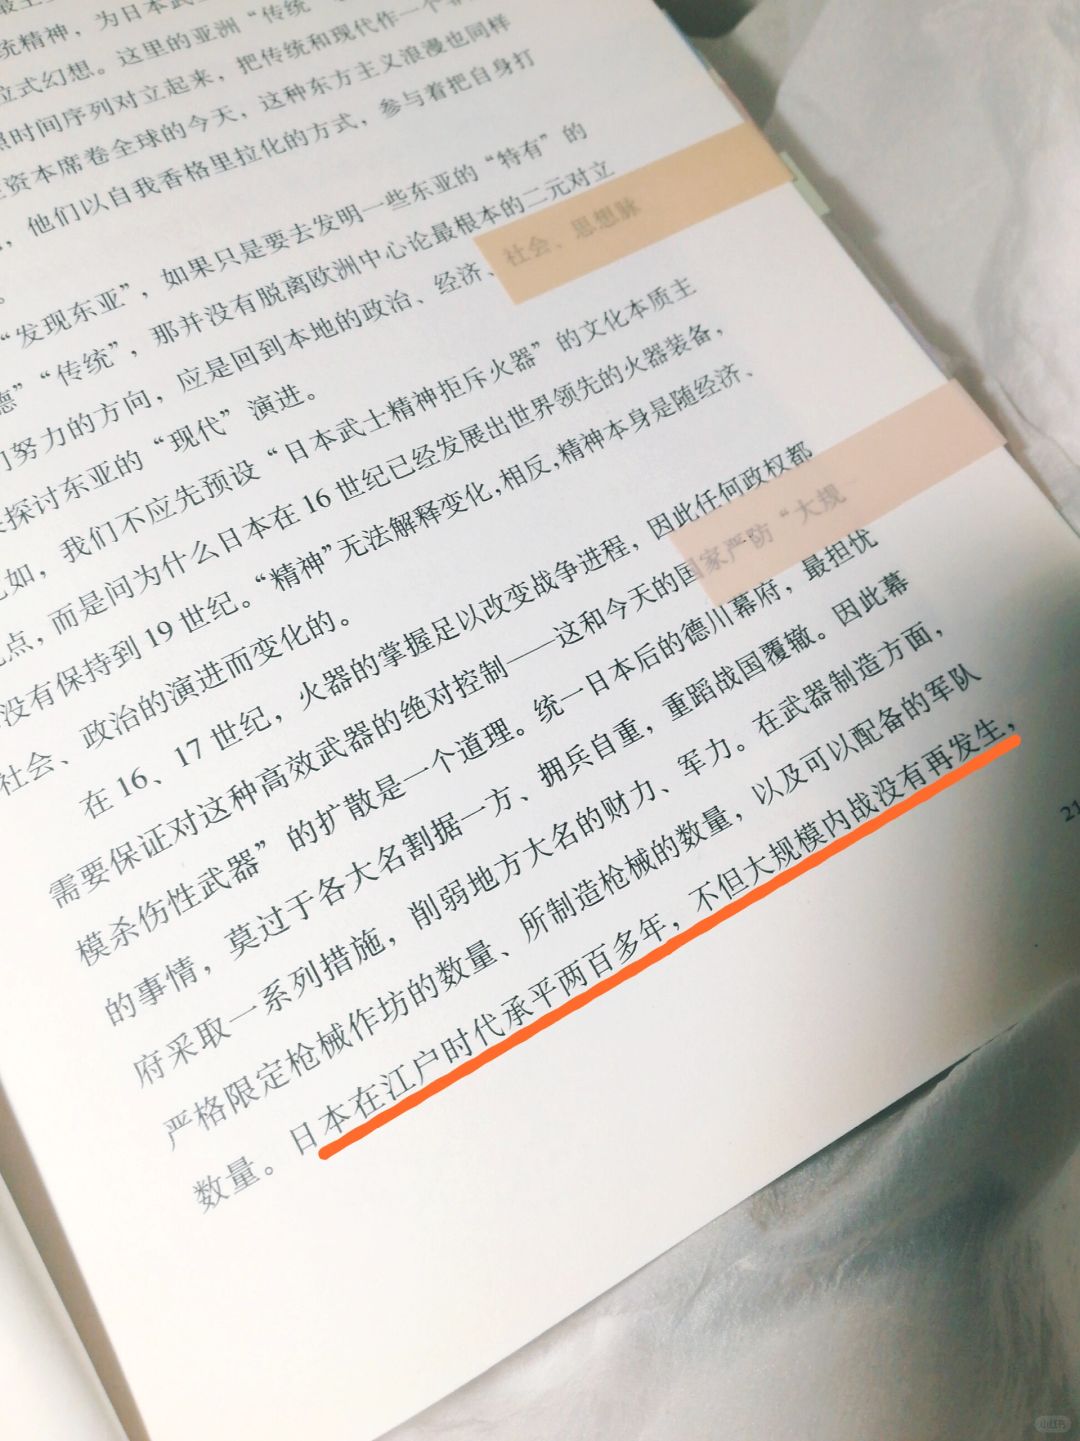 统精神，为日本武
拉式幻想。这里的亚洲“传统
照时间序列对立起来，把传统和现代作一个
资本席卷全球的今天，这种东方主义浪漫也同样
，他们以自我香格里拉化的方式，参与着把自身打
。
“发现东亚”，如果只是要去发明一些东亚的“特有”的
德”“传统”，那并没有脱离欧洲中心论最根本的二元对立
们努力的方向，应是回到本地的政治、经济、社会、思想脉
探讨东亚的“现代”演进。
比如，我们不应先预设“日本武士精神拒斥火器”的文化本质主
点，而是问为什么日本在16世纪已经发展出世界领先的火器装备，
没有保持到19世纪。“精神”无法解释变化，相反，精神本身是随经济、
社会、政治的演进而变化的。
在16、17世纪，火器的掌握足以改变战争进程，因此任何政权都
需要保证对这种高效武器的绝对控制——这和今天的国家严防“大规
模杀伤性武器”的扩散是一个道理。统一日本后的德川幕府，最担忧
的事情，莫过于各大名割据一方、拥兵自重，重蹈战国覆辙。因此幕
府采取一系列措施，削弱地方大名的财力、军力。在武器制造方面，
严格限定枪械作坊的数量、所制造枪械的数量，以及可以配备的军队
数量。日本在江户时代承平两百多年，不但大规模内战没有再发生，
21
小红书